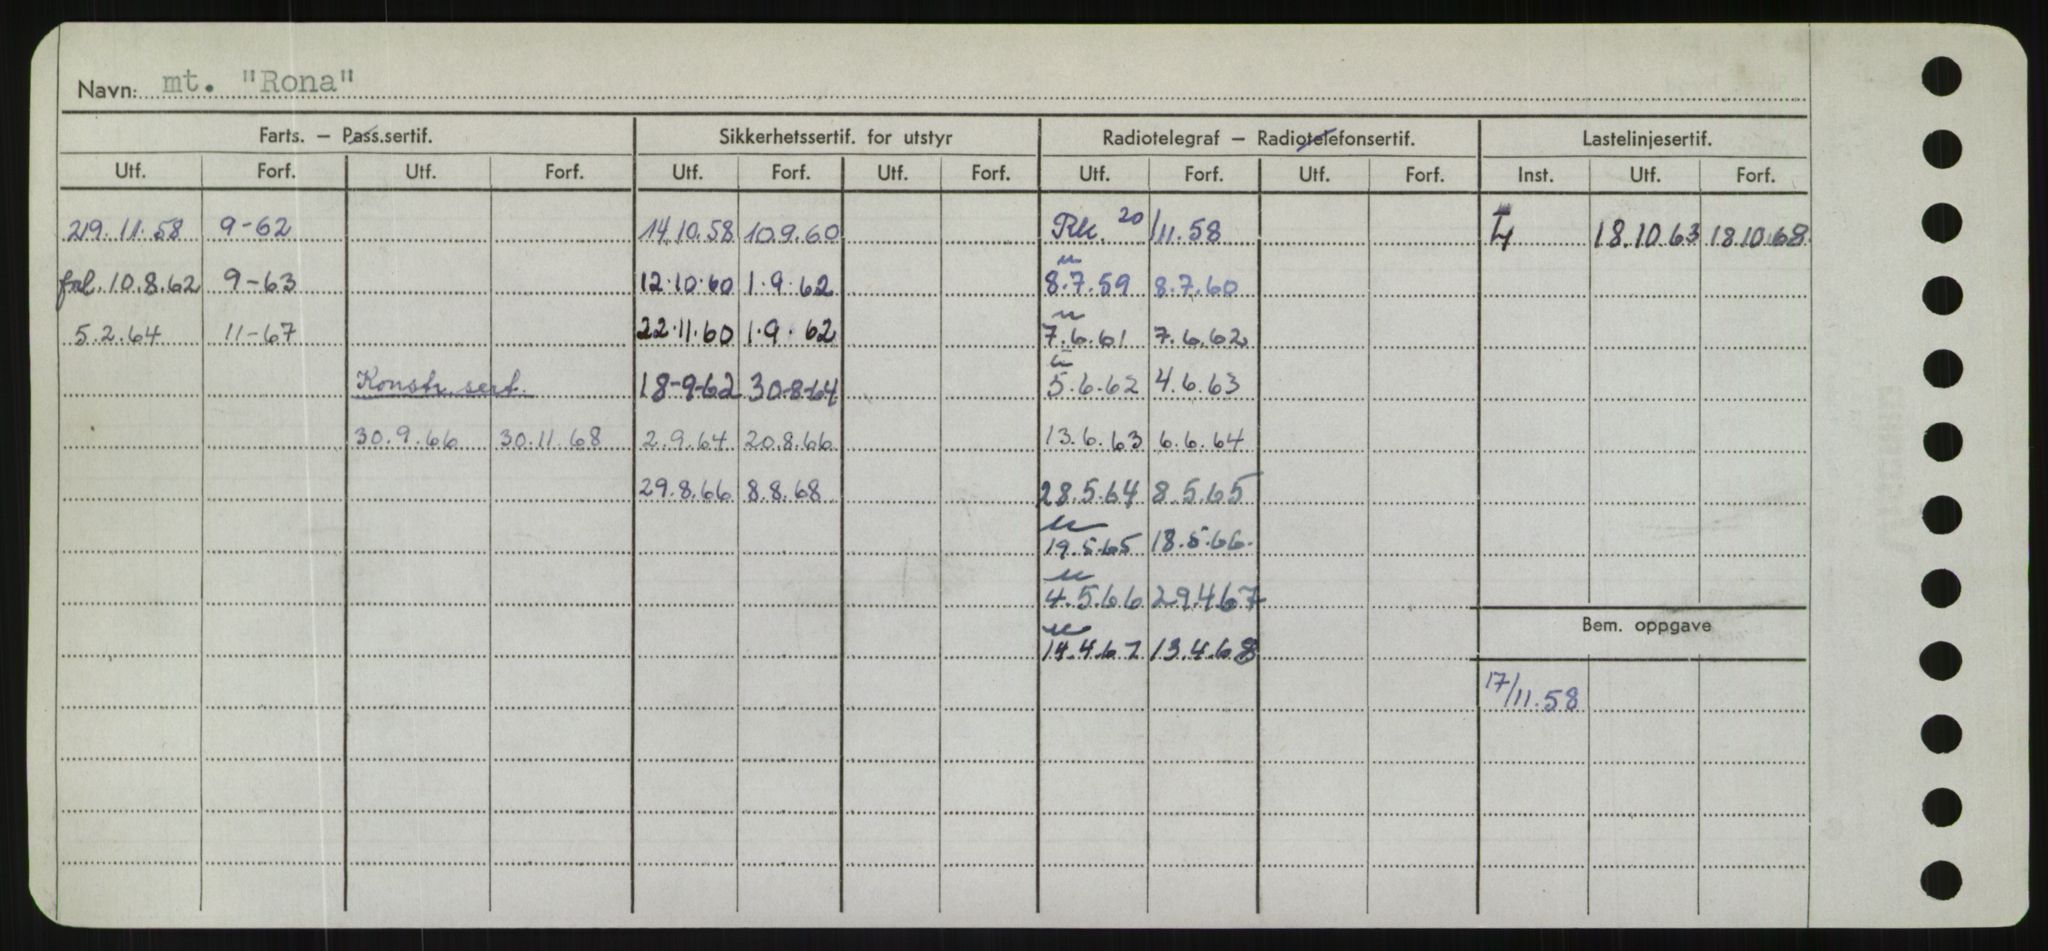 Navn: mt. "Rona"
Farts. — Pass.sertif. Sikkerhetssertif. for utstyr Radiotelegraf — Radiotelefonsertif. Lastelinjesertif.
Utf. Forf. Utf. Forf. Utf. Forf. Utf. Forf. Utf. Forf. Utf. Forf. Inst. Utf. Forf.
29.11.58 9-62 14.10.58 10.9.60 Rk. 20/11.58 L 18.10.63 18.10.68.
frl. 10.8.62 9-63 12.10.60 1.9.62 8.7.59 8.7.60
5.2.64 11-67 22.11.60 1.9.62 7.6.61 7.6.62
Konstr. sert. 18-9-62 30-8-64 5.6.62 4.6.63
30.9.66 30.11.68 2.9.64 20.8.66 13.6.63 6.6.64
29.8.66 8.8.68 28.5.64 8.5.65
19.5.65 18.5.66.
4.5.66 29.4.67
Bem. oppgave
14.4.67 13.4.68
17/11.58